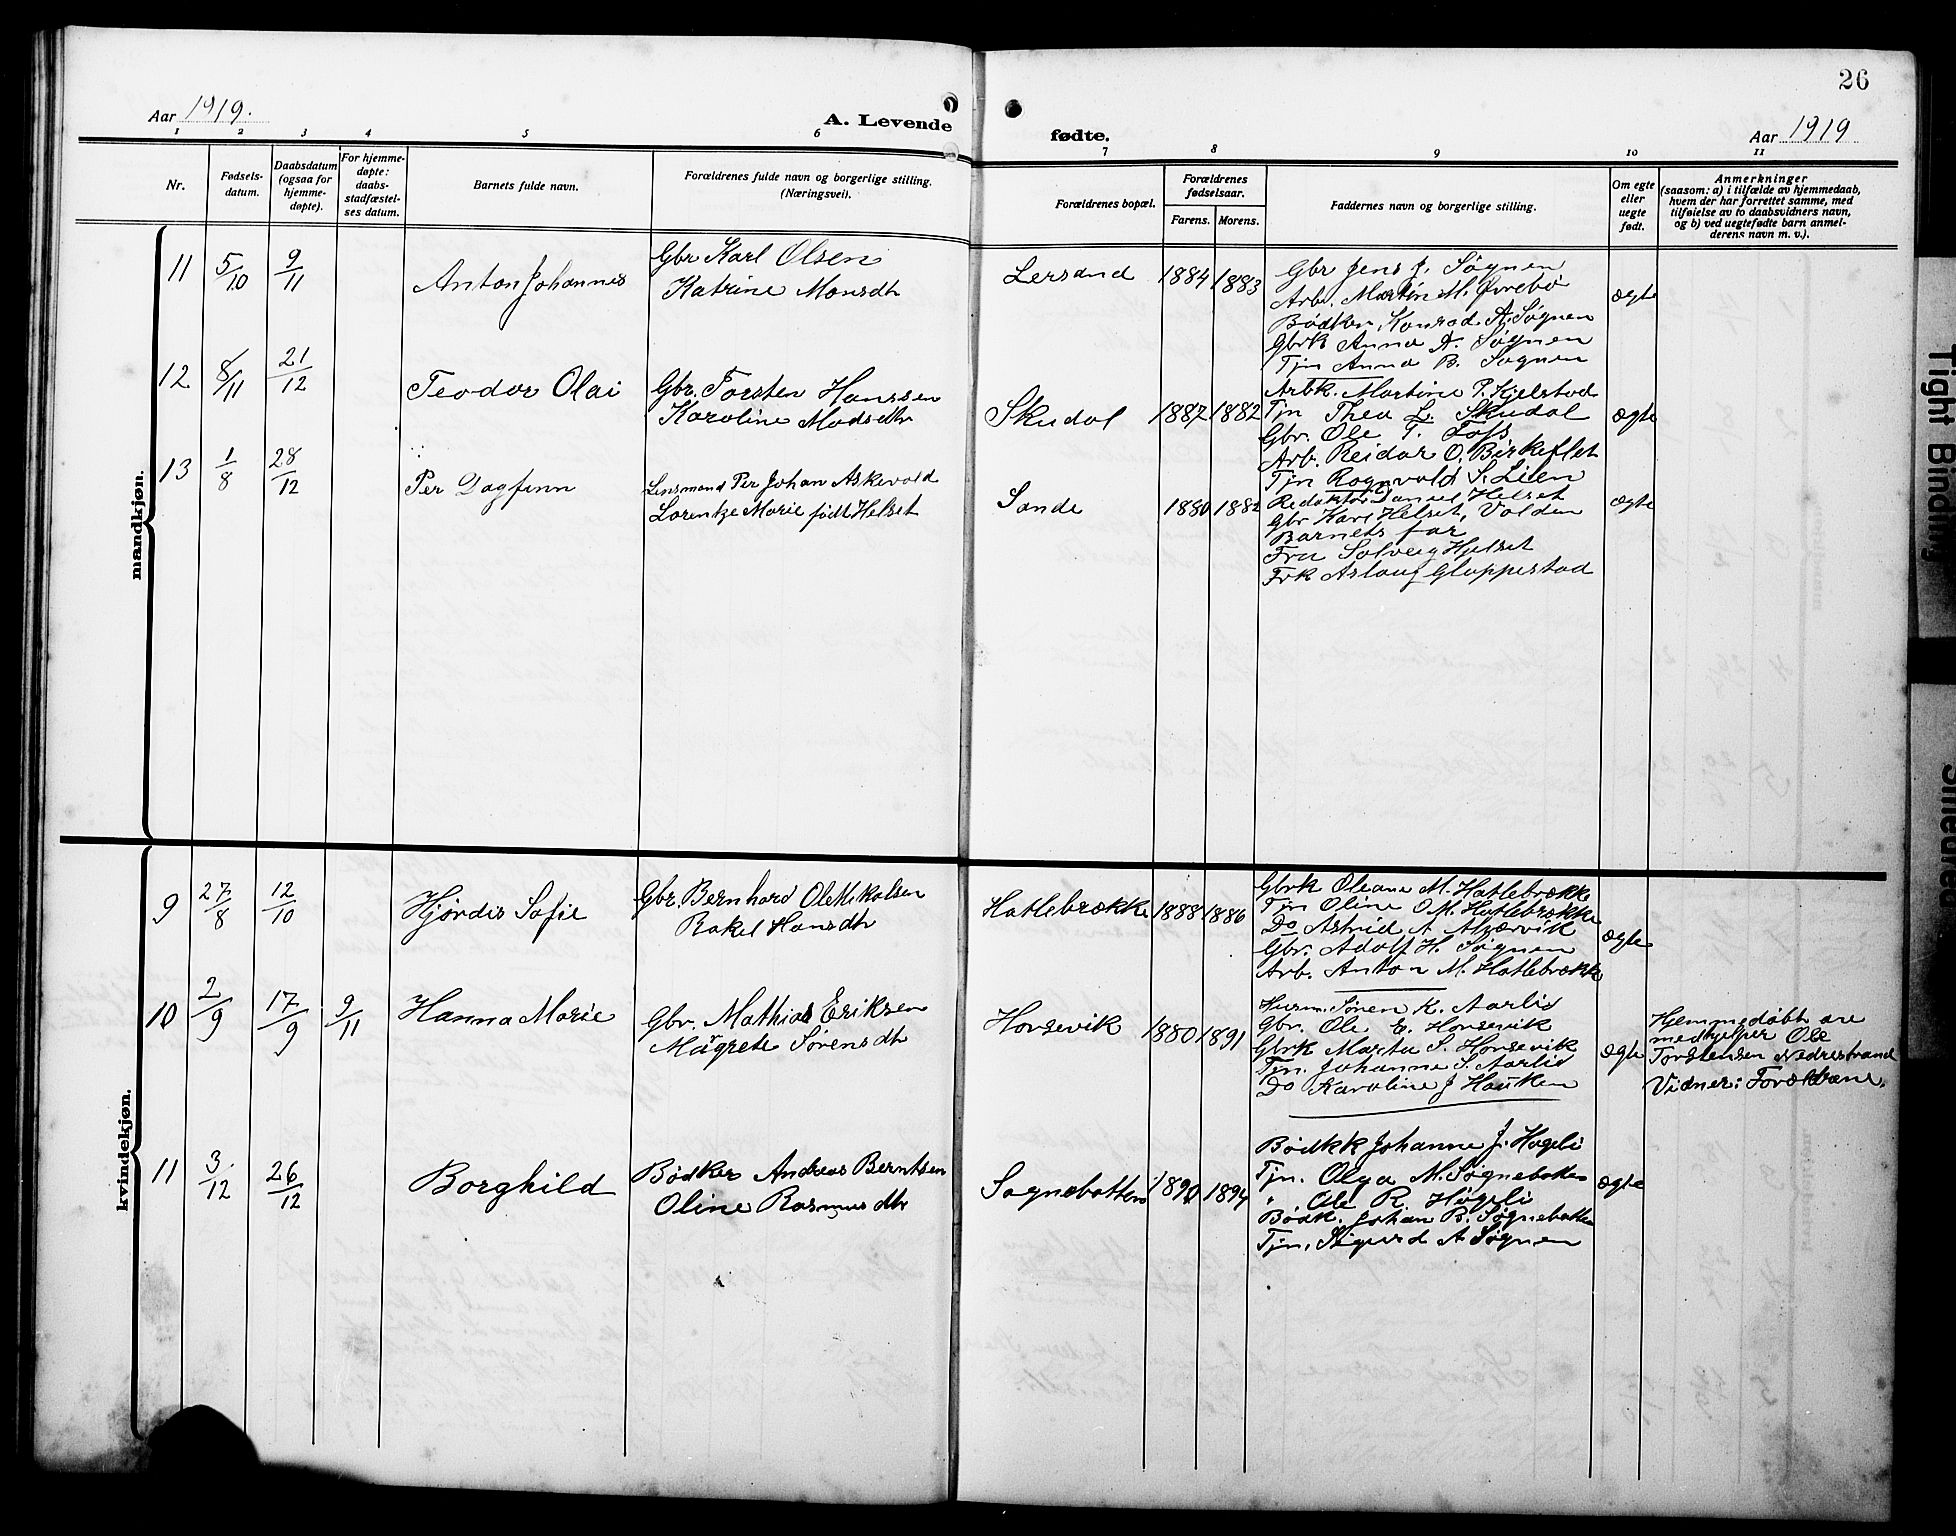 26
Aar 1919.
A. Levende
fødte.
Aar 1919
1 2 3 4 5 6 7 8 9 10 11
Nr.
Fødsels-
datum.
Daabsdatum
(ogsaa for
hjemme-
døpte).
For hjemme-
døpte:
daabs-
stadfæstel-
ses datum.
Barnets fulde navn.
Forældrenes fulde navn og borgerlige stilling.
(Næringsvei).
Forældrenes bopæl.
Forældrenes
fødselsaar.
Farens. Morens.
Faddernes navn og borgerlige stilling.
Om egte
eller
uegte
født.
Anmerkninger
(saasom: a) i tilfælde av hjemmedaab,
hvem der har forrettet samme, med
tilføielse av to daabsvidners navn,
og b) ved uegtefødte barn anmel-
derens navn m. v.).
mandkjøn.
11 5/10 9/11 Anton Johannes
Gbr Karl Olsen
Katrine Monsdtr
Lersand 1884 1883
Gbr Jens J. Søgnen
Arb. Martin M. Øvrebø
Bødker Konrad A. Søgnen
Gbrk Anna A. Søgnen
Tjn Anna B. Søgnen
ægte
12 8/11 21/12 Teodor Olai
Gbr. Torsten Hanssen
Karoline Madsdtr
Skudal 1887 1882
Arbk. Martine P. Kjelstad
Tjn Thea L. Skudal
Gbr. Ole T. Foss
Arb. Reidar O. Birkeflet
Tjn Rognvald S. Lien
ægte
13 1/8 28/12 Per Dagfinn
Lensmand Per Johan Askevold
Lorentze Marie født Helset
Sande 1880 1882
Redaktør Daniel Helset
Gbr Karl Helset, Volden
Barnets far
Fru Solveig Hjelset
Frk Aslaug Gloppestad
ægte
kvindekjøn.
9 27/8 12/10 Hjørdis Sofie
Gbr. Bernhard Ole Mikalsen
Rakel Hansdtr
Hatlebrække 1888 1886
Gbrk Oleane M. Hatlebrække
Tjn Oline O M. Hatlebrække
Do Astrid A
Gbr. Adolf H. Søgnen
Arb. Anton M. Hatlebrække
ægte
10 2/9 17/9 9/11 Hanna Marie
Gbr. Mathias Eriksen
Magrete Sørensdtr
Horsevik 1880 1891
Husm. Søren K. Aarlid
Gbr. Ole E. Horsevik
Gbrk Marta S. Horsevik
Tjn. Johanne S. Aarlid
Do Karoline J Hauken
ægte
Hjemmedøbt av
medhjelper Ole
Torstensen Nedrestrand
Vidner: Forældrene.
11 3/12 26/12 Borghild
Bødker Andreas Berntsen
Oline Rasmusdtr
Søgnebotten 1890 1894
Bødkk Johanne J. Høgeli
Tjn. Olga M. Søgnebotten
" Ole R. Høgeli
Bødk. Johan R. Søgnebotten
Tjn. Sigurd A Søgnen
ægte
Tight Binding